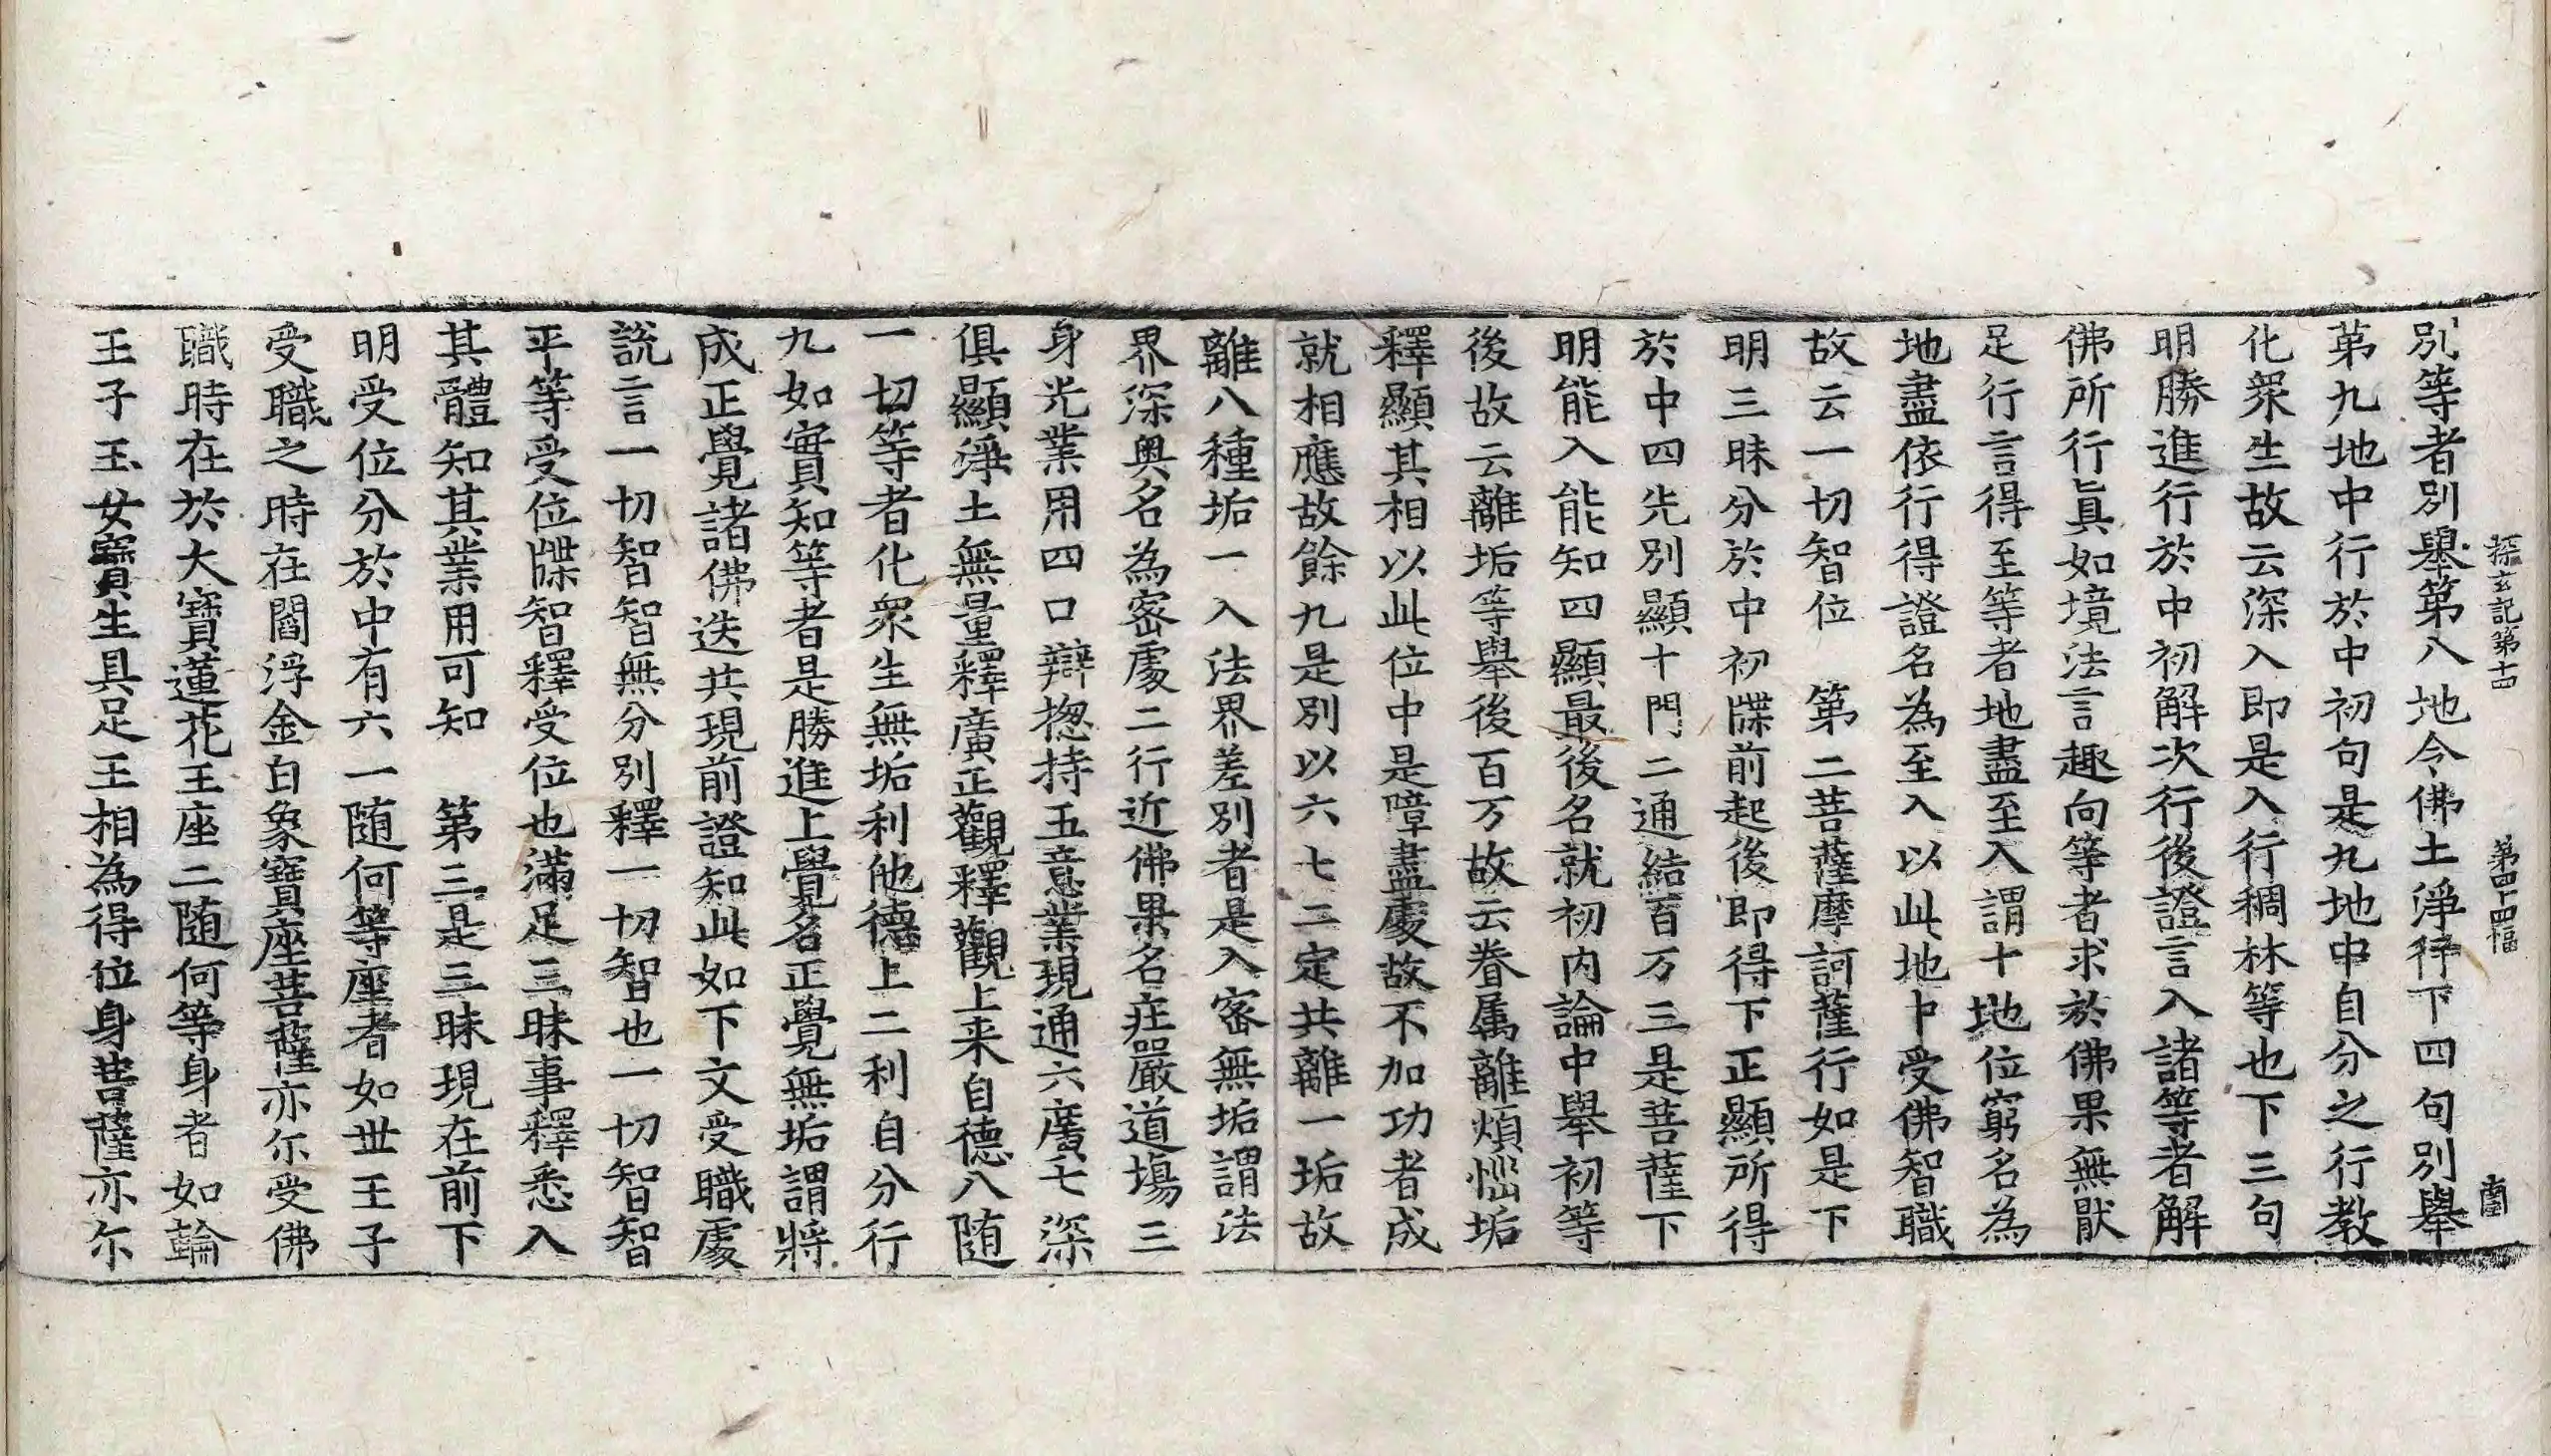 探玄記第十四 第四十四幅
別等者別舉第八地今佛土淨釋下四句別舉
第九地中行於中初句是九地中自分之行教
化衆生故云深入即是入行稠林等也下三句
明勝進行於中初解次行後證言入諸等者解
佛所行眞如境法言趣向等者求於佛果無猒
足行言得至等者地盡至入謂十地位窮名為
地盡依行得證名為至入以此地中受佛智職
故云一切智位 第二菩薩摩訶薩行如是下
明三昧分於中初牒前起後即得下正顯所得
於中四先別顯十門二通結百万三是菩薩下
明能入能知四顯最後名就初内論中舉初等
後故云離垢等舉後百万故云眷属離煩惱垢
釋顯其相以此位中是障盡處故不加功者成
就相應故餘九是別以六七二定共離一垢故
離八種垢一入法界差別者是入密無垢謂法
界深奥名為密處二行近佛果名荘嚴道場三
身光業用四口辯揔持五意業現通六廣七深
俱顯淨土無量釋廣正觀釋觀上来自德八随
一切等者化衆生無垢利他德上二利自分行
九如實知等者是勝進上覺名正覺無垢謂將
成正覺諸佛迭共現前證知此如下文受職處
說言一切智智無分別釋一切智也一切智智
平等受位牒智釋受位也滿足三昧事釋悉入
其體知其業用可知 第三是三昧現在前下
明受位分於中有六一随何等座者如世王子
受職之時在閻浮金白象寶座菩薩亦尓受佛
職時在於大寶蓮花王座二随何等身者如輪
王子玉女寶生具足王相為得位身菩薩亦尓